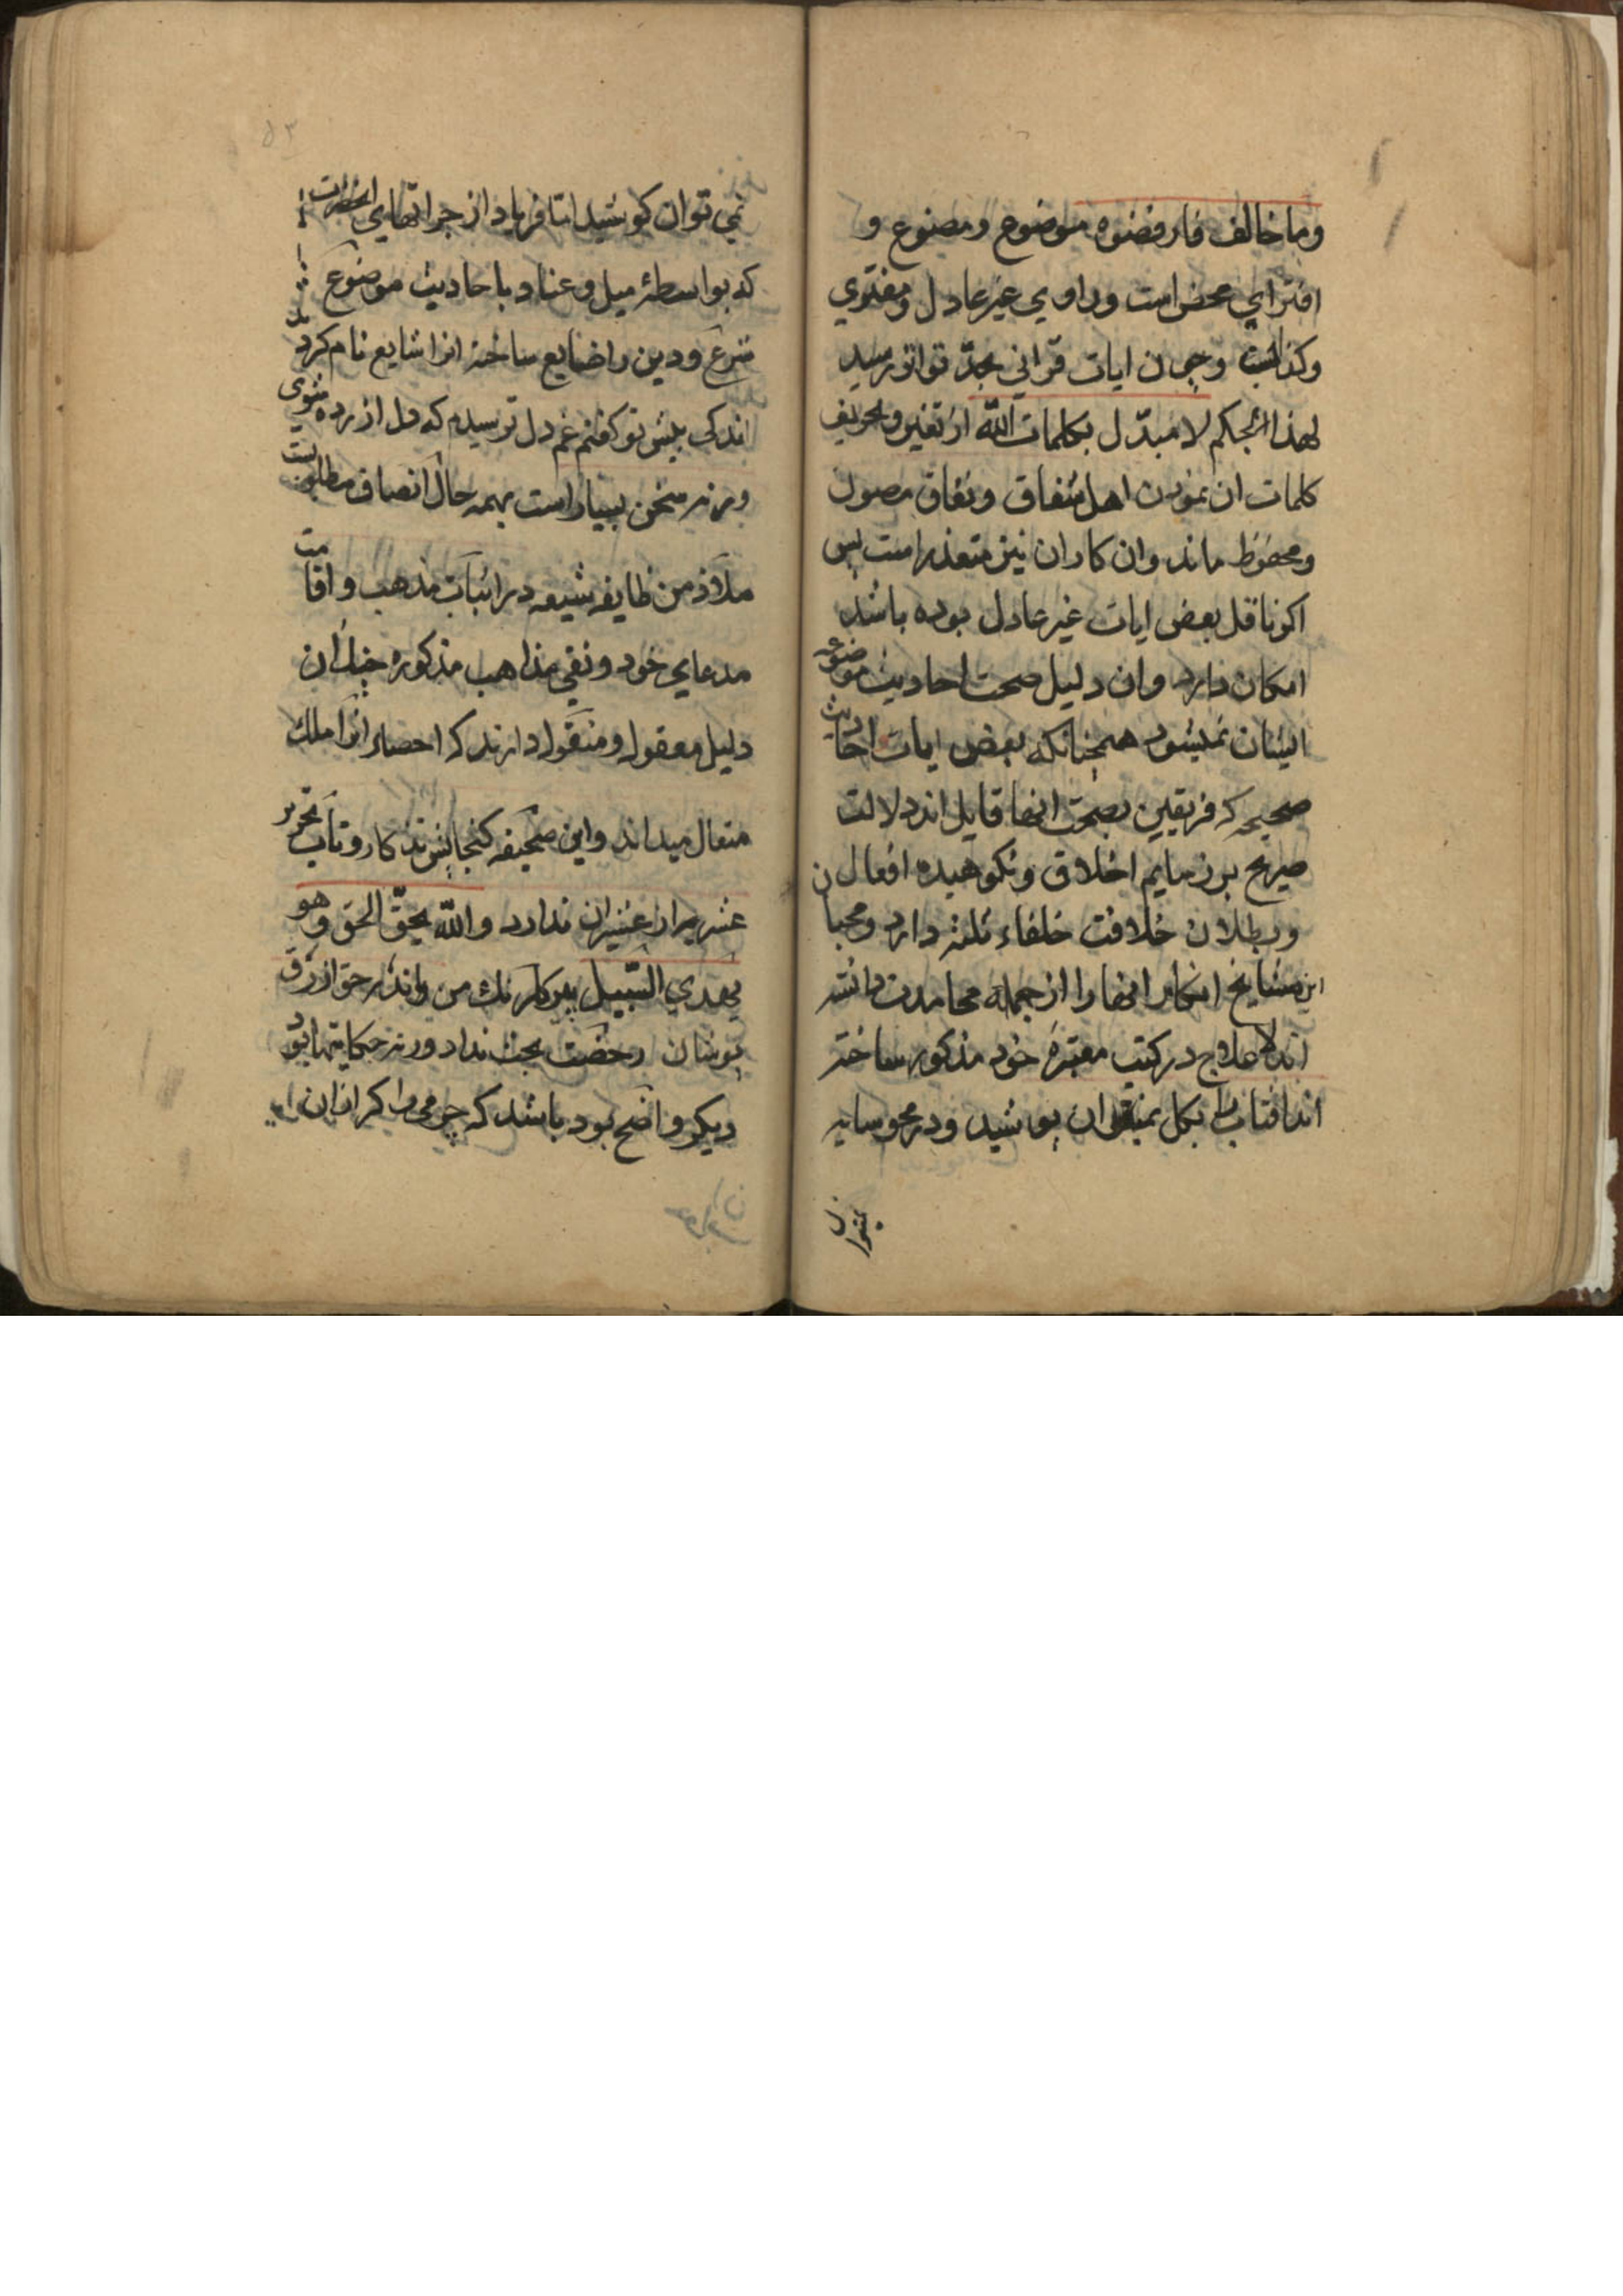 وما خالف فارفضوه موضوع و مصنوع و
افترای محض است و راوی غیر عادل و مفتری
وکذابست و چون ایات قرانی بحدّ تواتر رسید
لهذا بحکم لا مبدّل بکلمات اللّه از تغیر و تحریف
کلمات ان نمودن اهل شقاق و نفاق مصون
و محفوظ ماند وان کار ان نیز متعذر است پس
اکر ناقل بعض ایات غیر عادل بوده باشد
امکان دارد وان دلیل صحت احادیث موضوعه
ایشان نمیشود همچنانکه بعض ایات احادیث
صحیحه که فریقین بصحت انها قایل اند دلالت
صریح بر زمایم اخلاق و نکوهیده افعال
و بطلان خلافت خلفاء ثلثه دارد و محبان
این مشایخ انکار انها را از جمله محامدت دانسته
اند لا علاج در کتب معتبره خود مذکور ساخته
اند افتاب را بکل نمیتوان پوشید ودر محو سایه
نمیتوان
۵۳
نمی توان کوشید اما فریاد از جراتهای انحضرات
که بواسطهٔ میل و عناد باحادیث موضوع
شرع و دین را ضایع ساخته انرا شایع نام کرده
اند کی پیش تو کفتم غم دل ترسیدم که دل ازرده شوی
ورنه سخن بسیار است بهمه حال انصاف مطلوبست
ملاذ من طایفه شیعه در اثبات مذهب و اقامت
مدعای خود و نفی مذاهب مذکوره چندان
دلیل معقول و منقول دارند که احصاء انرا ملک
متعال میداند و این صحیفه کنجایش تذکار و تاب تحریر
عشری از عشیران ندارد و اللّه یحقّ الحق و هو
یهدی السّبیل پیر کلرنک من اندر حق ازرق
پوشان رخصت بجث نداد ورنه حکایتها بود
دیکر واضح بود باشد که چو می را کر ازان